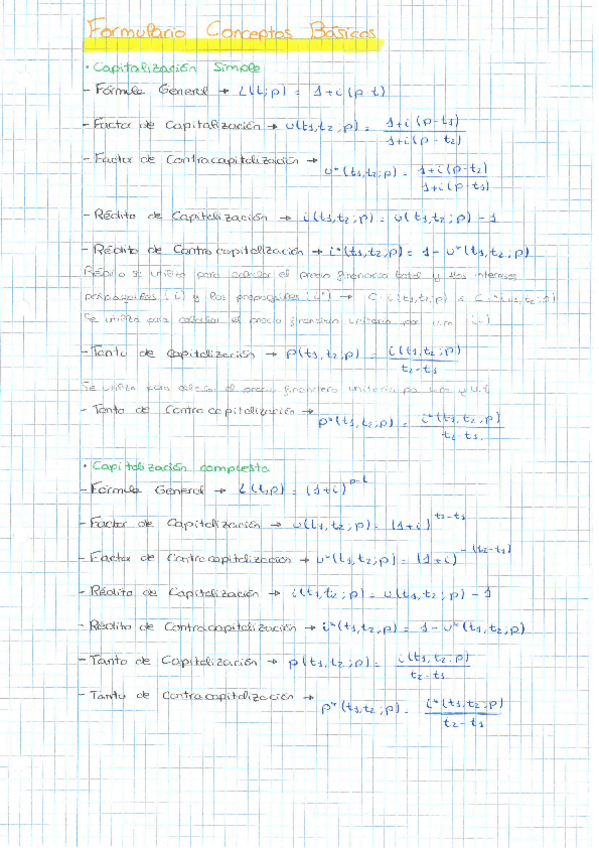 Formulario Conceptos Básicos
· Capitalización Simple
- Fórmula General → L(t;p) = 1+i(p-t)
- Factor de Capitalización → u(t1,t2;p) = 1+i(p-t1) / 1+i(p-t2)
- Factor de Contracapitalización →
u*(t1,t2;p) = 1+i(p-t2) / 1+i(p-t1)
- Rédito de Capitalización → i(t1,t2;p) = u(t1,t2;p) - 1
- Rédito de Contracapitalización → i*(t1,t2,p) = 1 - u*(t1,t2,p)
Rédito se utiliza para calcular el precio financiero total y los intereses
pospagables (i) y los prepagables (i*) →
Se utiliza para calcular el precio financiero unitario por u.m
- Tanto de Capitalización → p(t1,t2,p) = i(t1,t2;p) / t2-t1
Se utiliza para calcular el precio financiero unitario por u.m y u.t
- Tanto de Contracapitalización →
p*(t1,t2;p) = i*(t1,t2,p) / t2-t1
· Capitalización compuesta
- Fórmula General → L(t,p) = (1+i)^p-t
- Factor de Capitalización → u(t1,t2;p) = (1+i)^t2-t1
- Factor de Contracapitalización → u*(t1,t2;p) = (1+i)^-(t2-t1)
- Rédito de Capitalización → i(t1,t2;p) = u(t1,t2;p) - 1
- Rédito de Contracapitalización → i*(t1,t2,p) = 1 - u*(t1,t2,p)
- Tanto de Capitalización → p(t1,t2;p) = i(t1,t2;p) / t2-t1
- Tanto de Contracapitalización →
p*(t1,t2;p) = i*(t1,t2;p) / t2-t1